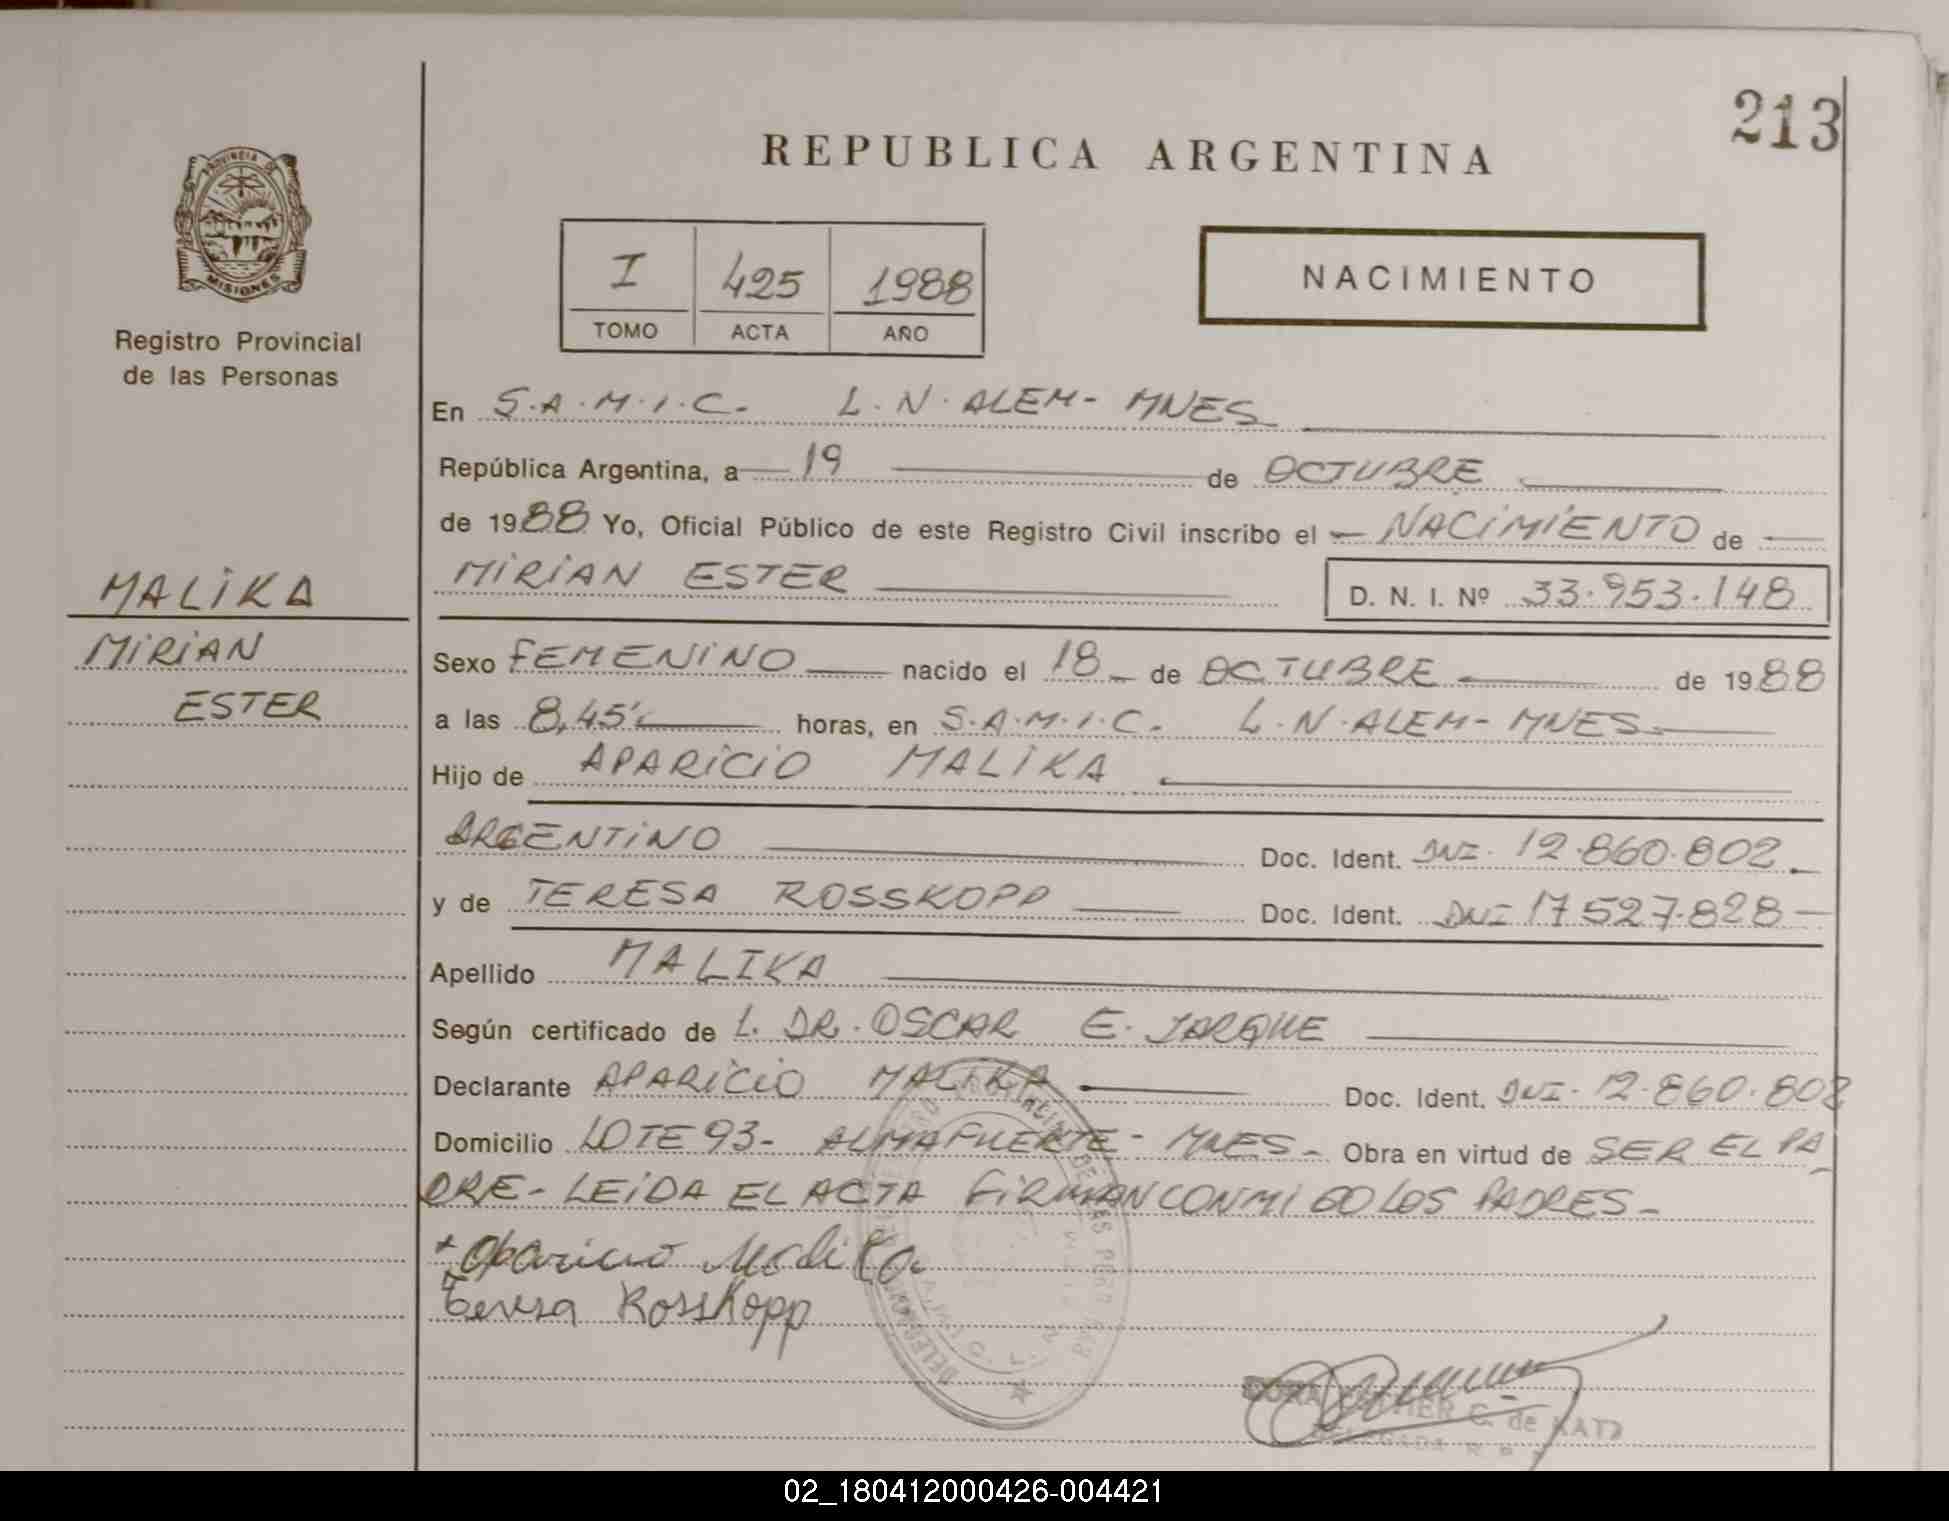 213
REPUBLICA ARGENTINA
PROVINCIA DE
MISIONES
Registro Provincial
de las Personas
I 425 1988
TOMO ACTA AÑO
NACIMIENTO
MALIKA
MIRIAN
ESTER
En S.A.M.I.C. L.N.ALEM- MNES
República Argentina, a 19 de OCTUBRE
de 1988 Yo, Oficial Público de este Registro Civil inscribo el NACIMIENTO de
MIRIAN ESTER D. N. I. Nº 33.953.148
Sexo FEMENINO nacido el 18 de OCTUBRE de 1988
a las 8,45' horas, en S.A.M.I.C. L.N.ALEM- MNES
Hijo de APARICIO MALIKA
ARGENTINO Doc. Ident. DNI. 12.860.802
y de TERESA ROSSKOPP Doc. Ident. DNI 17 527.828
Apellido MALIKA
Según certificado de L. DR. OSCAR E. JARQUE
Declarante APARICIO MALIKA Doc. Ident. DNI. 12.860.802
Domicilio LOTE 93- ALMAFUERTE- MNES- Obra en virtud de SER EL PA
DRE- LEIDA EL ACTA FIRMAN CONMIGO LOS PADRES-
Aparicio Malika
Teresa Rosskopp
C. de
DELEGADA R. P.
02_180412000426-004421